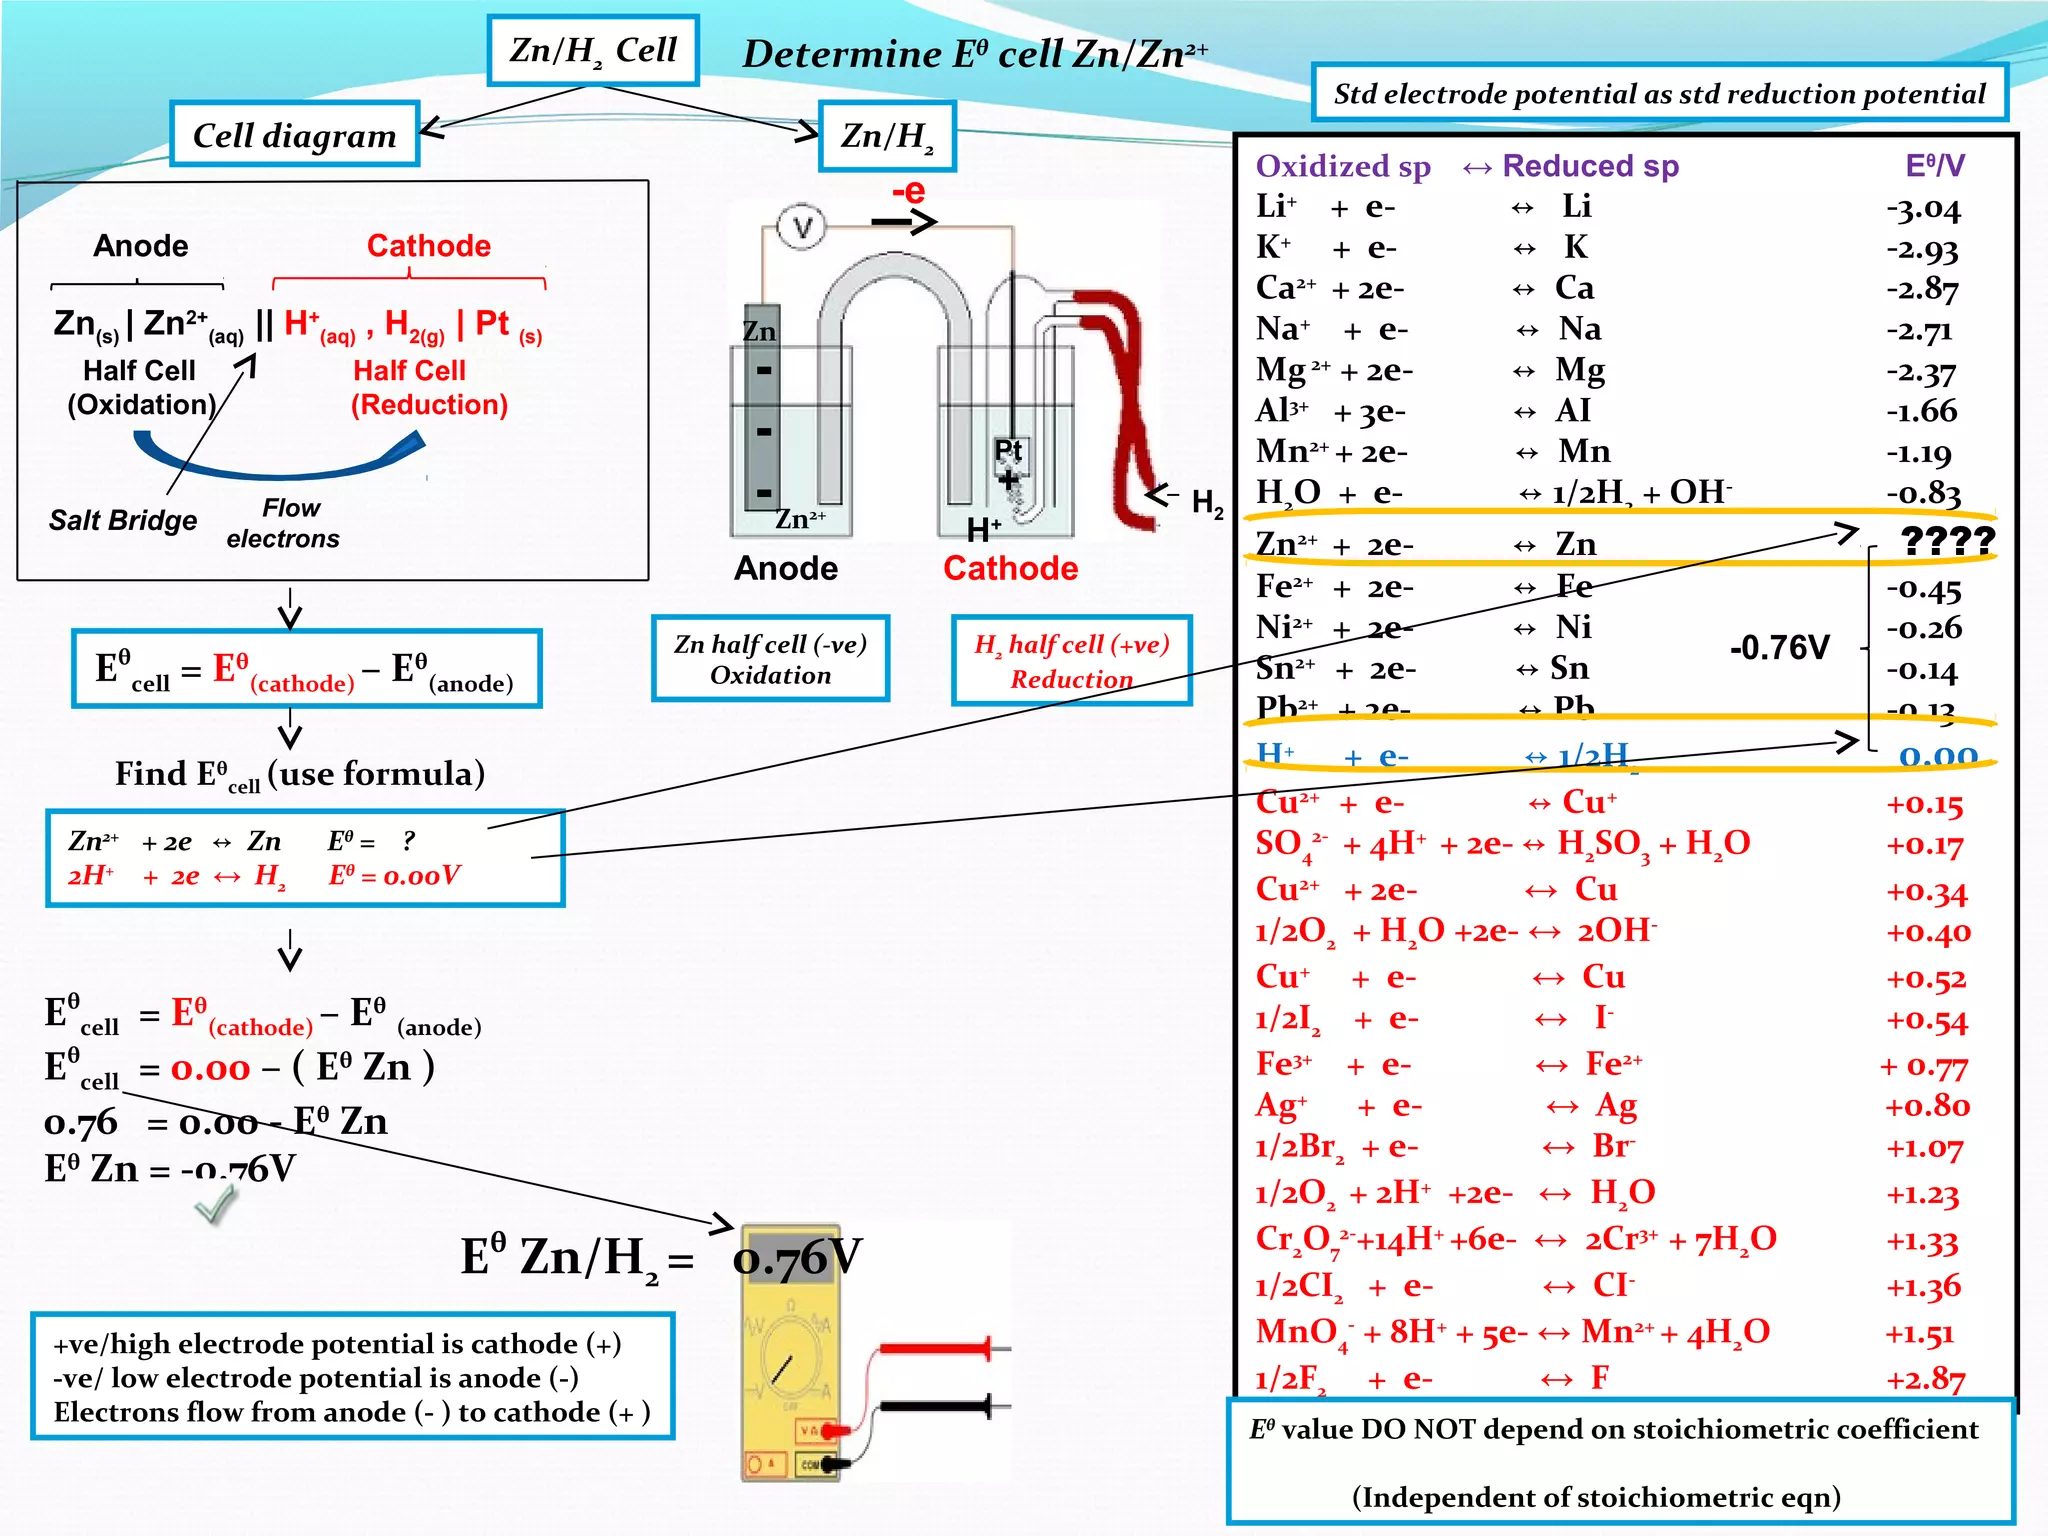 Zn/H₂ Cell
Determine Eᶿ cell Zn/Zn²⁺
Std electrode potential as std reduction potential
Cell diagram
Zn/H₂
-e
V
Anode Cathode
Zn(s) | Zn²⁺(aq) || H⁺(aq) , H₂(g) | Pt (s)
Half Cell Half Cell
(Oxidation) (Reduction)
Salt Bridge
Flow
electrons
Zn
-
-
-
Zn²⁺
Pt
+
H⁺
H₂
Anode Cathode
Zn half cell (-ve)
Oxidation
H₂ half cell (+ve)
Reduction
Eᶿcell = Eᶿ(cathode) – Eᶿ(anode)
Find Eᶿcell (use formula)
Zn²⁺ + 2e ↔ Zn Eᶿ = ?
2H⁺ + 2e ↔ H₂ Eᶿ = 0.00V
Eᶿcell = Eᶿ(cathode) – Eᶿ (anode)
Eᶿcell = 0.00 – ( Eᶿ Zn )
0.76 = 0.00 - Eᶿ Zn
Eᶿ Zn = -0.76V
Eᶿ Zn/H₂ = 0.76V
+ve/high electrode potential is cathode (+)
-ve/ low electrode potential is anode (-)
Electrons flow from anode (- ) to cathode (+ )
Ω
V
A
V
A
OFF
V Ω
A
COM
Oxidized sp ↔ Reduced sp Eᶿ/V
Li⁺ + e- ↔ Li -3.04
K⁺ + e- ↔ K -2.93
Ca²⁺ + 2e- ↔ Ca -2.87
Na⁺ + e- ↔ Na -2.71
Mg ²⁺ + 2e- ↔ Mg -2.37
Al³⁺ + 3e- ↔ AI -1.66
Mn²⁺ + 2e- ↔ Mn -1.19
H₂O + e- ↔ 1/2H₂ + OH⁻ -0.83
Zn²⁺ + 2e- ↔ Zn ????
Fe²⁺ + 2e- ↔ Fe -0.45
Ni²⁺ + 2e- ↔ Ni -0.26
-0.76V
Sn²⁺ + 2e- ↔ Sn -0.14
Pb²⁺ + 2e- ↔ Pb -0.13
H⁺ + e- ↔ 1/2H₂ 0.00
Cu²⁺ + e- ↔ Cu⁺ +0.15
SO₄²⁻ + 4H⁺ + 2e- ↔ H₂SO₃ + H₂O +0.17
Cu²⁺ + 2e- ↔ Cu +0.34
1/2O₂ + H₂O +2e- ↔ 2OH⁻ +0.40
Cu⁺ + e- ↔ Cu +0.52
1/2I₂ + e- ↔ I⁻ +0.54
Fe³⁺ + e- ↔ Fe²⁺ + 0.77
Ag⁺ + e- ↔ Ag +0.80
1/2Br₂ + e- ↔ Br⁻ +1.07
1/2O₂ + 2H⁺ +2e- ↔ H₂O +1.23
Cr₂O₇²⁻+14H⁺ +6e- ↔ 2Cr³⁺ + 7H₂O +1.33
1/2CI₂ + e- ↔ CI⁻ +1.36
MnO₄⁻ + 8H⁺ + 5e- ↔ Mn²⁺ + 4H₂O +1.51
1/2F₂ + e- ↔ F +2.87
Eᶿ value DO NOT depend on stoichiometric coefficient
(Independent of stoichiometric eqn)